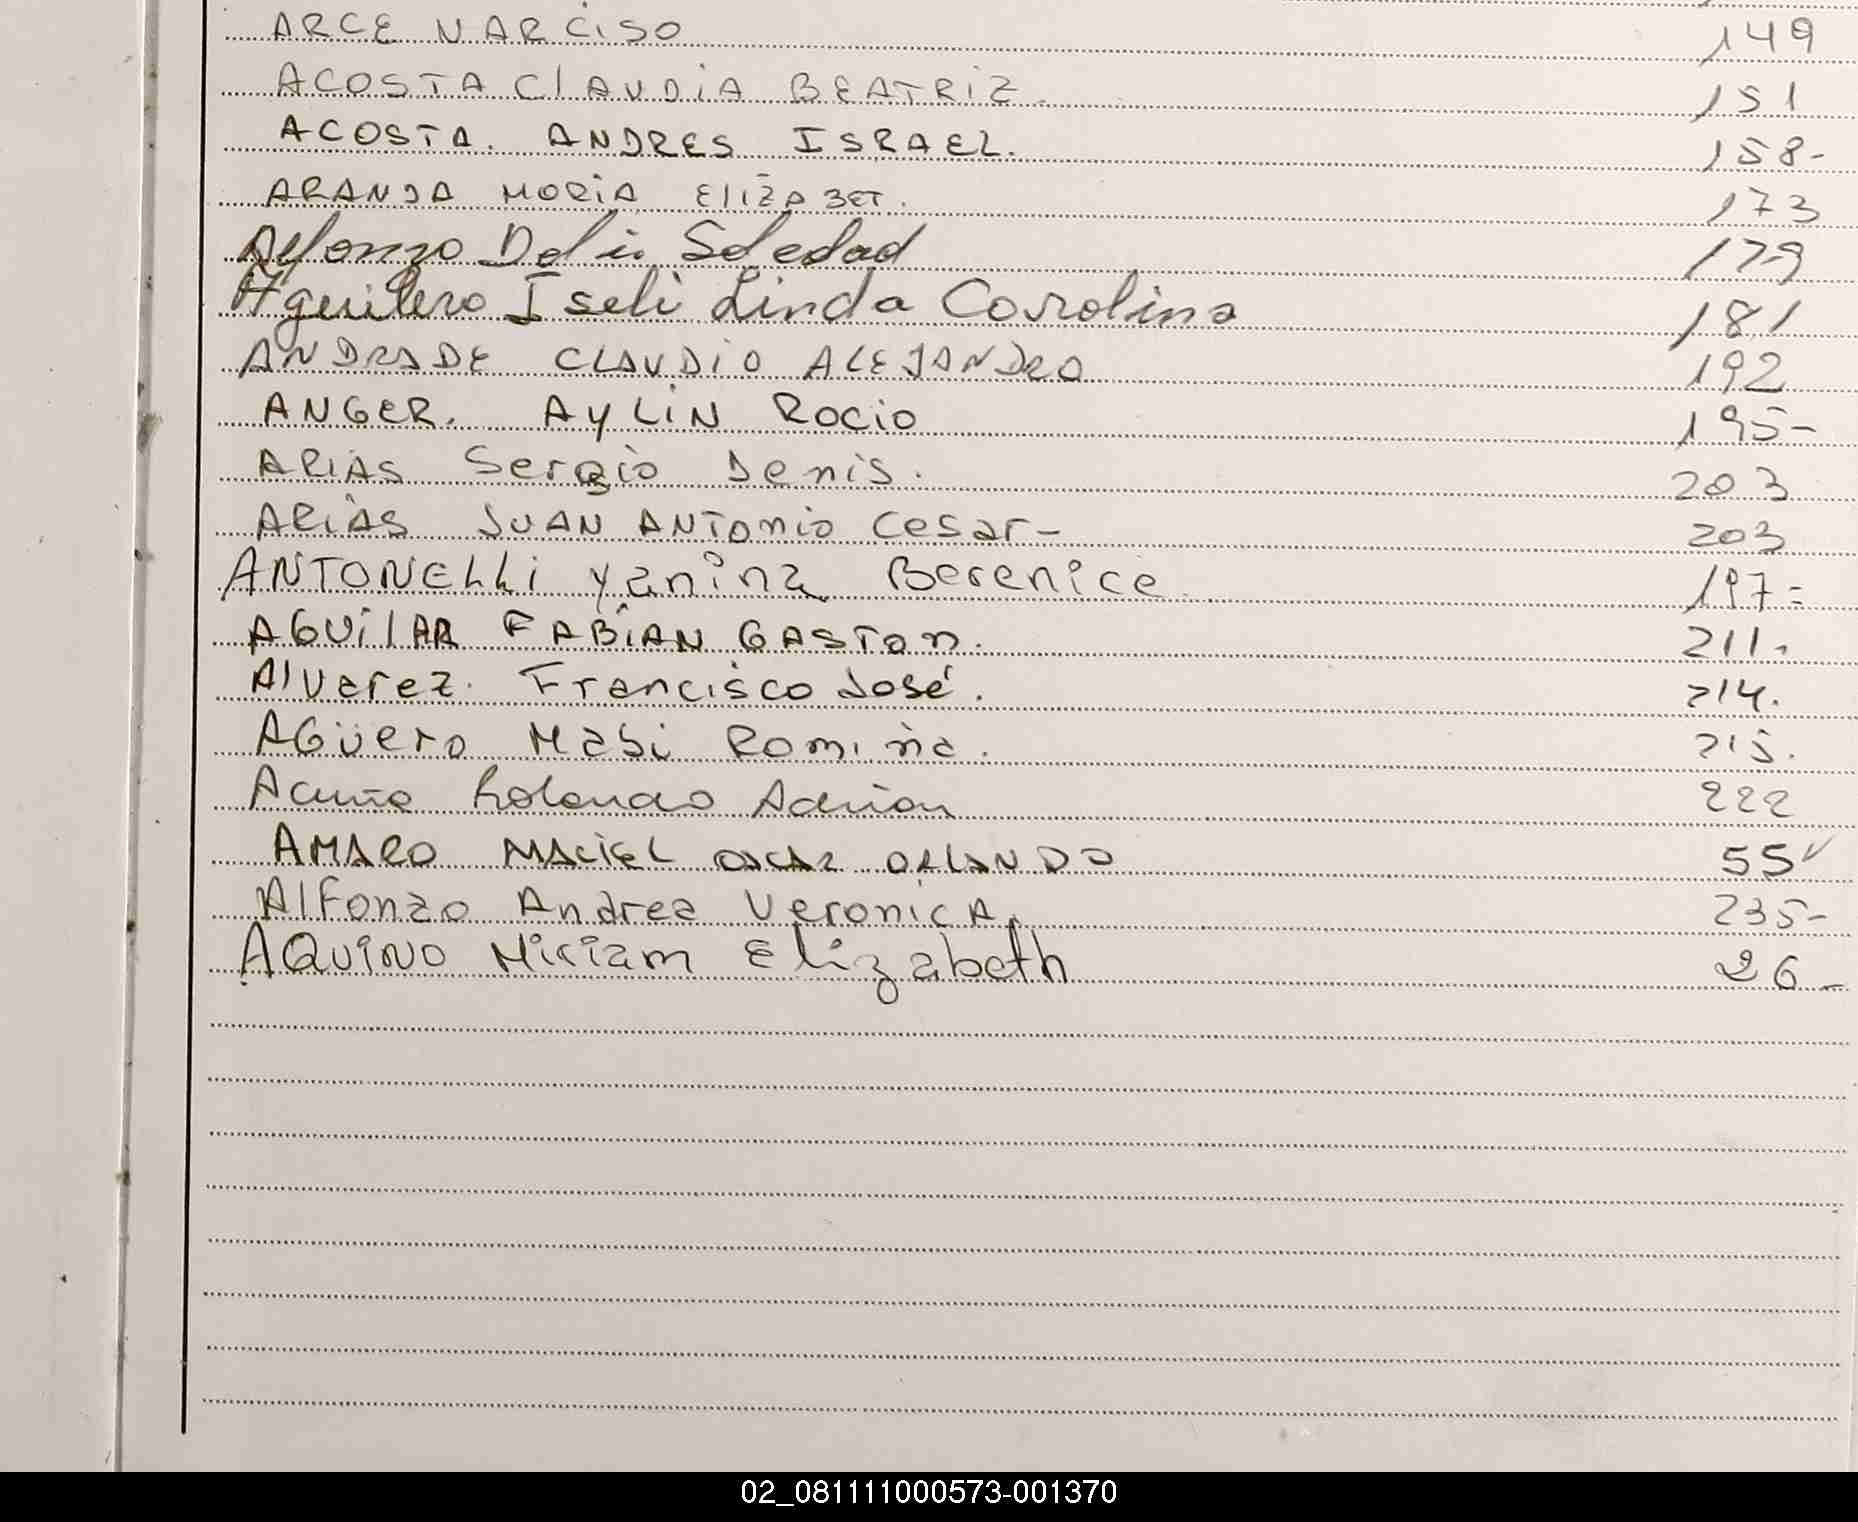 ARCE NARCISO 149
ACOSTA ClAUDiA BEATRIZ. 151
ACOSTA. ANDRES ISRAEL. 158-
ARANDA MORIA EliZABET. 173
Alfonzo Delia Soledad 179
Aguilero Iseli Linda Carolina 181
ANDRADE CLAUDIO ALEJANDRO 192
ANGER. AYLIN ROCIO 195-
ARIAS Sergio Denis. 203
ARIAS JUAN ANTONIO Cesar- 203
ANTONELLI Yanina Berenice 197-
AGUilAR FABIAN GASTON. 211.
Alvarez. Francisco José. 214.
AGüero Mabi Romina. 215.
Acuña Rolando Adrian 222
AMARO MACIEL OSCAR ORLANDO 55
Alfonzo Andrea VeronicA. 235-
AQUINO Miriam Elizabeth 26-
02_081111000573-001370